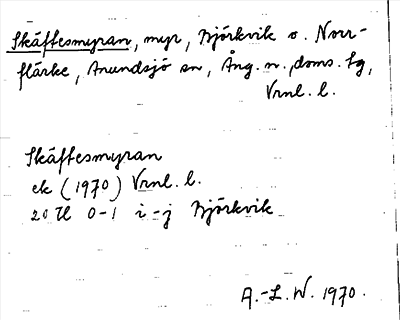 Skäftesmyran, myr, Björkvik o. Norr-
flärke, Arundsjö sn, Ång. n., doms. lg,
Vrnl. l.
Skäftesmyran
ek (1970) Vrnl. l.
20 Hl 0-1 i-j Björkvik
A.-L. W. 1970.